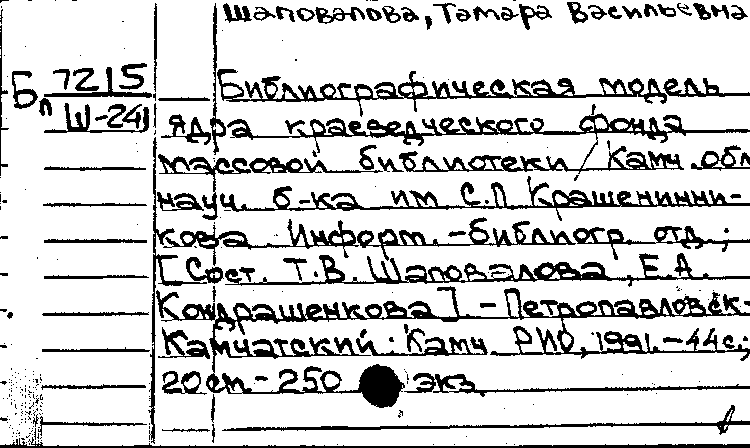 Шаповалова, Тамара Васильевна
Бп 7215
Ш-241
Библиографическая модель
ядра краеведческого фонда
массовой библиотеки / Камч. обл
науч. б-ка им С.П Крашенинни-
кова. Информ.-библиогр. отд.;
[Сост. Т.В. Шаповалова, Е.А.
Кондрашенкова]. - Петропавловск-
Камчатский: Камч. РИО, 1991.-44с.;
20см - 250 экз.